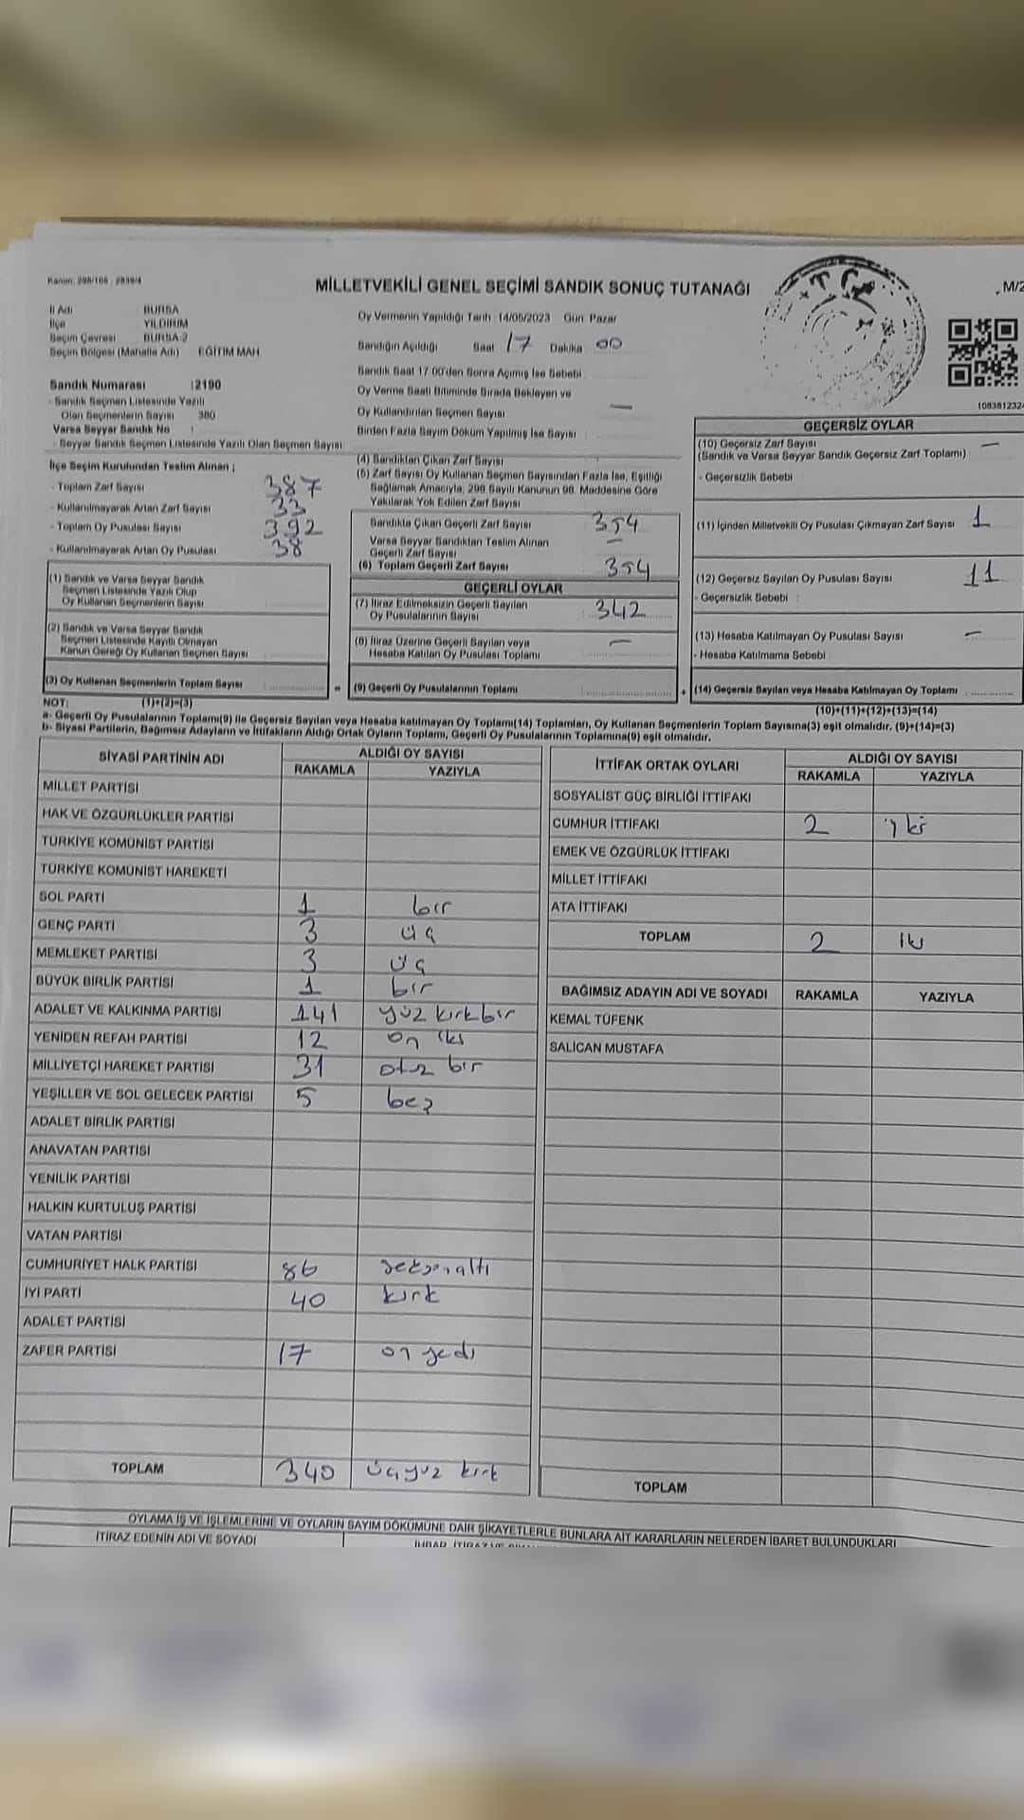 Kanun: 298/105 : 2839/4
MİLLETVEKİLİ GENEL SEÇİMİ SANDIK SONUÇ TUTANAĞI
M/2
İl Adı BURSA
İlçe YILDIRIM
Seçim Çevresi BURSA-2
Seçim Bölgesi (Mahalle Adı) EĞİTİM MAH
Sandık Numarası :2190
- Sandık Seçmen Listesinde Yazılı
Olan Seçmenlerin Sayısı 380
Varsa Seyyar Sandık No :
- Seyyar Sandık Seçmen Listesinde Yazılı Olan Seçmen Sayısı
İlçe Seçim Kurulundan Teslim Alınan ;
- Toplam Zarf Sayısı 387
- Kullanılmayarak Artan Zarf Sayısı 33
- Toplam Oy Pusulası Sayısı 392
- Kullanılmayarak Artan Oy Pusulası 38
(1) Sandık ve Varsa Seyyar Sandık
Seçmen Listesinde Yazılı Olup
Oy Kullanan Seçmenlerin Sayısı
(2) Sandık ve Varsa Seyyar Sandık
Seçmen Listesinde Kayıtlı Olmayan
Kanun Gereği Oy Kullanan Seçmen Sayısı
(3) Oy Kullanan Seçmenlerin Toplam Sayısı
Oy Vermenin Yapıldığı Tarih :14/05/2023 Gün: Pazar
Sandığın Açıldığı Saat 17 Dakika 00
Sandık Saat 17:00'den Sonra Açılmış İse Sebebi
Oy Verme Saati Bitiminde Sırada Bekleyen ve
Oy Kullandırılan Seçmen Sayısı —
Birden Fazla Sayım Döküm Yapılmış İse Sayısı
(4) Sandıktan Çıkan Zarf Sayısı
(5) Zarf Sayısı Oy Kullanan Seçmen Sayısından Fazla İse, Eşitliği
Sağlamak Amacıyla, 298 Sayılı Kanunun 98. Maddesine Göre
Yakılarak Yok Edilen Zarf Sayısı
Sandıkta Çıkan Geçerli Zarf Sayısı 354
Varsa Seyyar Sandıktan Teslim Alınan
Geçerli Zarf Sayısı —
(6) Toplam Geçerli Zarf Sayısı 354
GEÇERLİ OYLAR
(7) İtiraz Edilmeksizin Geçerli Sayılan
Oy Pusulalarının Sayısı 342
(8) İtiraz Üzerine Geçerli Sayılan veya
Hesaba Katılan Oy Pusulası Toplamı —
= (9) Geçerli Oy Pusulalarının Toplamı
1083812324
GEÇERSİZ OYLAR
(10) Geçersiz Zarf Sayısı —
(Sandık ve Varsa Seyyar Sandık Geçersiz Zarf Toplamı)
- Geçersizlik Sebebi
(11) İçinden Milletvekili Oy Pusulası Çıkmayan Zarf Sayısı 1
(12) Geçersiz Sayılan Oy Pusulası Sayısı 11
- Geçersizlik Sebebi :
(13) Hesaba Katılmayan Oy Pusulası Sayısı —
- Hesaba Katılmama Sebebi
+ (14) Geçersiz Sayılan veya Hesaba Katılmayan Oy Toplamı
NOT: (1)+(2)=(3) (10)+(11)+(12)+(13)=(14)
a- Geçerli Oy Pusulalarının Toplamı(9) ile Geçersiz Sayılan veya Hesaba katılmayan Oy Toplamı(14) Toplamları, Oy Kullanan Seçmenlerin Toplam Sayısına(3) eşit olmalıdır. (9)+(14)=(3)
b- Siyasi Partilerin, Bağımsız Adayların ve İttifakların Aldığı Ortak Oyların Toplamı, Geçerli Oy Pusulalarının Toplamına(9) eşit olmalıdır.
SİYASİ PARTİNİN ADI ALDIĞI OY SAYISI
RAKAMLA YAZIYLA
MİLLET PARTİSİ
HAK VE ÖZGÜRLÜKLER PARTİSİ
TÜRKİYE KOMÜNİST PARTİSİ
TÜRKİYE KOMÜNİST HAREKETİ
SOL PARTİ 1 bir
GENÇ PARTİ 3 üç
MEMLEKET PARTİSİ 3 üç
BÜYÜK BİRLİK PARTİSİ 1 bir
ADALET VE KALKINMA PARTİSİ 141 yüz kırkbir
YENİDEN REFAH PARTİSİ 12 on iki
MİLLİYETÇİ HAREKET PARTİSİ 31 otuz bir
YEŞİLLER VE SOL GELECEK PARTİSİ 5 beş
ADALET BİRLİK PARTİSİ
ANAVATAN PARTİSİ
YENİLİK PARTİSİ
HALKIN KURTULUŞ PARTİSİ
VATAN PARTİSİ
CUMHURİYET HALK PARTİSİ 86 seksenaltı
İYİ PARTİ 40 kırk
ADALET PARTİSİ
ZAFER PARTİSİ 17 on yedi
TOPLAM 340 üçyüz kırk
İTTİFAK ORTAK OYLARI ALDIĞI OY SAYISI
RAKAMLA YAZIYLA
SOSYALİST GÜÇ BİRLİĞİ İTTİFAKI
CUMHUR İTTİFAKI 2 iki
EMEK VE ÖZGÜRLÜK İTTİFAKI
MİLLET İTTİFAKI
ATA İTTİFAKI
TOPLAM 2 iki
BAĞIMSIZ ADAYIN ADI VE SOYADI RAKAMLA YAZIYLA
KEMAL TÜFENK
SALİCAN MUSTAFA
TOPLAM
OYLAMA İŞ VE İŞLEMLERİNE VE OYLARIN SAYIM DÖKÜMÜNE DAİR ŞİKAYETLERLE BUNLARA AİT KARARLARIN NELERDEN İBARET BULUNDUKLARI
İTİRAZ EDENİN ADI VE SOYADI